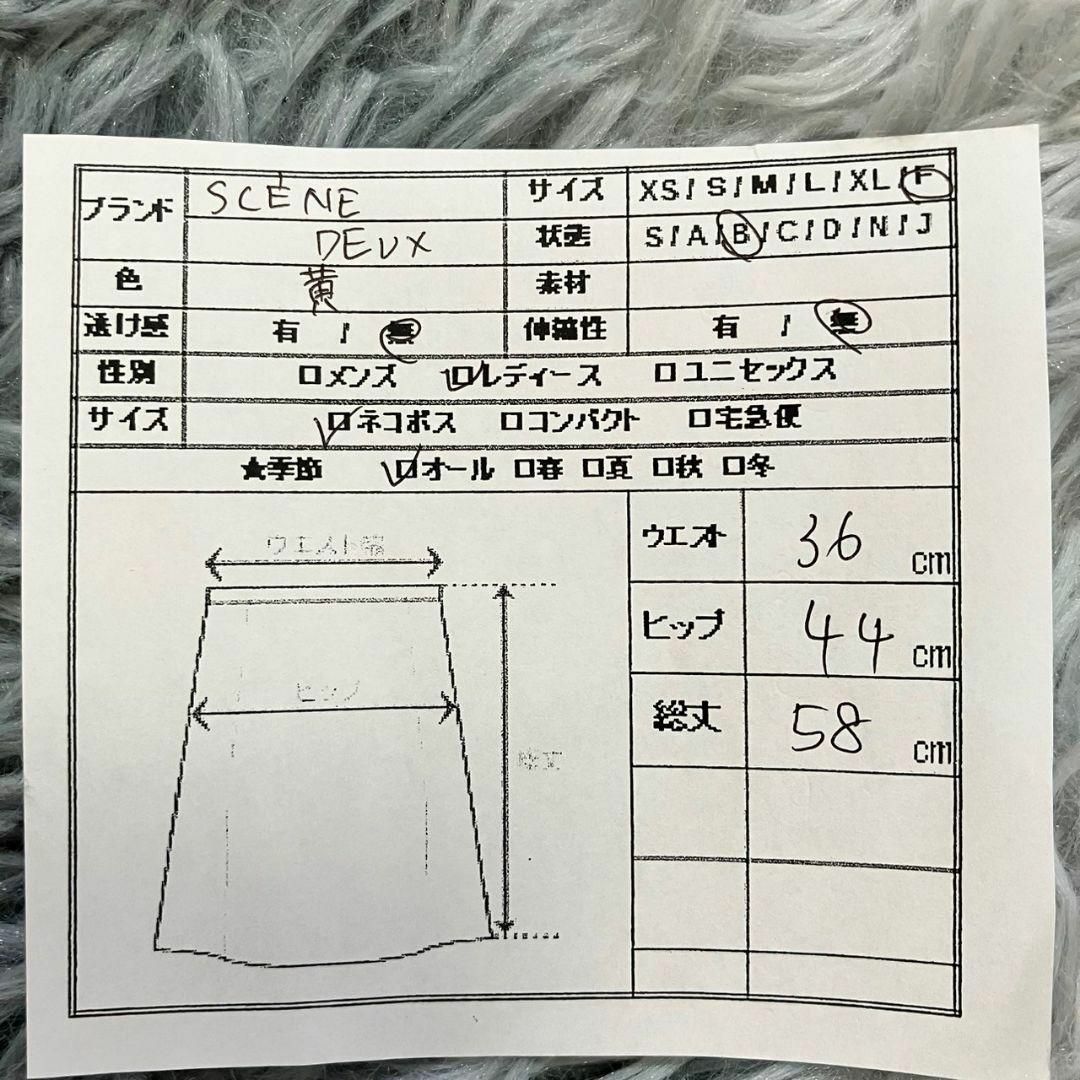 ブランド SCÈNE サイズ XS/S/M/L/XL/F
DEUX 状態 S/A/B/C/D/N/J
色 黄 素材
透け感 有 / 無 伸縮性 有 / 無
性別 □メンズ □レディース □ユニセックス
サイズ □ネコポス □コンパクト □宅急便
★季節 □オール □春 □夏 □秋 □冬
ウエスト幅
ウエスト 36 cm
ヒップ 44 cm
ヒップ
総丈 58 cm
総丈